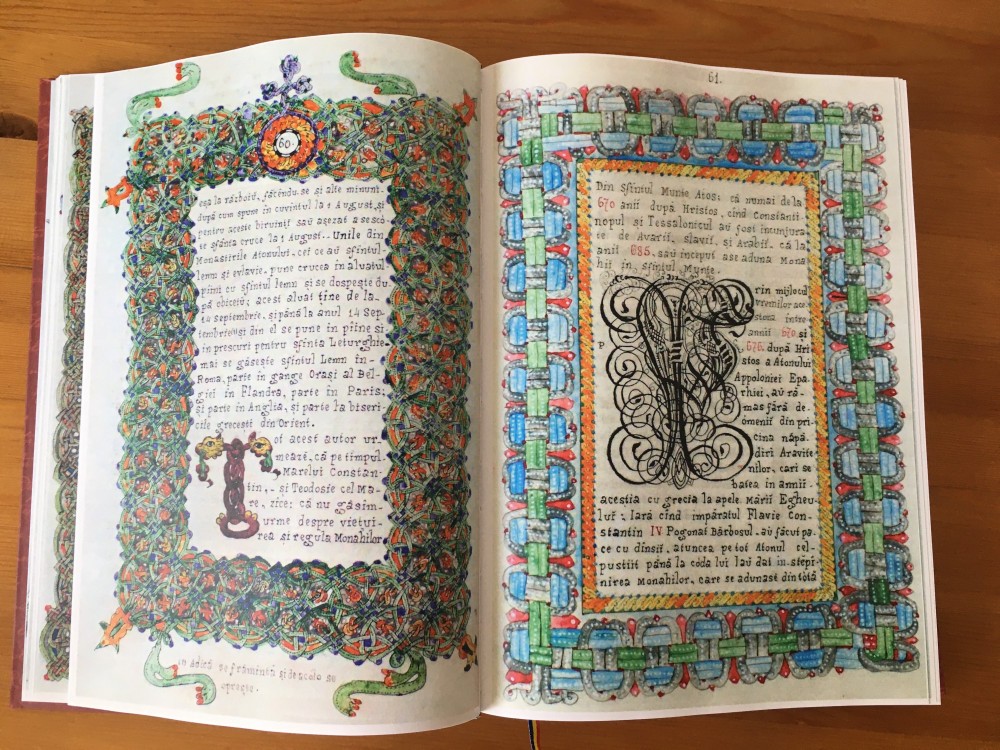 60.
eșa la războiu, făcêndu-se și alte minuni.
după cum spune în cuvîntul la 1 August, și
pentru aceste biruinți sau așezat a se scó-
te sfânta cruce la 1 August.. Unile din
Monastirile Atonului. cei ce au sfîntul
lemn și evlavie, pune crucea în aluatul
pinii cu sfîntul lemn și se dospește du
pă obiceiu; acest aluat ține de la-
14 septembrie. și pânâ la anul 14 Sep-
tembrie(1) și din el se pune in piine și
in prescuri pentru sfinta Leturghie
mai se gâsește sfintul Lemn in-
Roma, parte in gange Orași al Bel-
giei in Flandra, parte in Paris;
și parte in Anglia, și parte la biseri-
cile grecești din Orient.
Tot acest autor ur-
mează, că pe timpul
Marelui Constan-
tin,- și Teodosie cel Ma-
re, zice: că nu gâsim
urme despre viețui-
rea și regula Monahilor
1) adică se frămîntă și de acolo se
oprește.
61.
Din Sfintul Munte Atos; că numai de la
670 anii după Hristos, cind Constanti-
nopul și Tessalonicul au fost incunjura-
te de Avarii, slavii, și Arabii. că la
anii 685, sau inceput ase aduna Mona
hii in sfintul Munte.
Prin mijlocul
vremilor aces
tora intre
annii 670 și
676. după Hri
stos a Atonului
Appoloniei Epa
rhiei, au râ-
mas fără de
ómenii din pri
cina năpă
diri Aravite
nilor, cari se
batea in annii-
aceștia cu grecia la apele Mării Egheu-
lui; Iară cind impăratul Flavie Con-
stantin IV Pogonat Bărbosul - au făcut pa-
ce cu dinșii, atuncea pe tot Atonul cel-
pustiit până la coda lui lau dat in stepi-
nirea Monahilor, care se adunase din totă